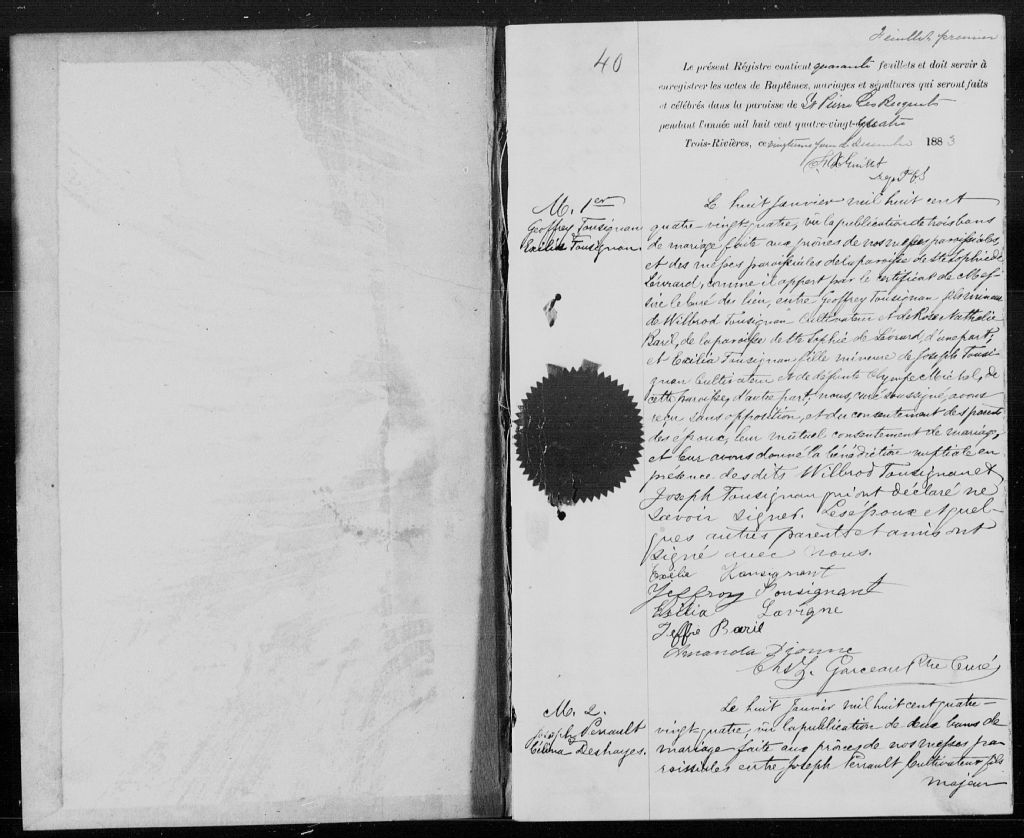 Feuillet premier
40
Le présent Régistre contient quarante feuillets et doit servir à
enregistrer les actes de Baptêmes, mariages et sépultures qui seront faits
et célébrés dans la paroisse de St Pierre Les Becquets
pendant l'année mil huit cent quatre-vingt-quatre
Trois-Rivières, ce vingtième jour de Décembre 1883
M. 1er
Geoffrey Tousignan
Exilia Tousignan
Le huit Janvier mil huit cent
quatre-vingt quatre, vu la publication de trois bans
de mariage faite aux prônes de nos messes paroissiales,
et des messes paroissiales de la paroisse de Ste Sophie de
Lévrard, comme il appert par le certificat de Mes-
sire le Curé du lieu, entre Geoffrey Tousignan fils mineur
de Wilbrod Tousignan Cultivateur et de Rose Nathalie
Baril, de la paroisse de Ste Sophie de Lévrard, d'une part;
et Exilia Tousignan fille mineure de Joseph Tousi-
gnan Cultivateur et de défunte Olympe Michel, de
cette paroisse, d'autre part; nous, curé soussigné, avons
reçu sans opposition, et du consentement des parents
des époux, leur mutuel consentement de mariage,
et leur avons donné la bénédiction nuptiale en
présence des dits Wilbrod Tousignan et
Joseph Tousignan qui ont déclaré ne
savoir signer. Les époux et quel-
ques autres parents et amis ont
signé avec nous.
Exilia Tousignant
Jeffroy Tousignant
Exilia Lavigne
Jeffre Baril
Amanda Dionne
Chs Z. Garceau Ptre Curé
M. 2.
Joseph Perrault
&
Célina Deshayes.
Le huit Janvier mil huit cent quatre-
vingt-quatre, vu la publication de deux bans de
mariage faite aux prônes de nos messes pa-
roissiales entre Joseph Perrault Cultivateur fils
majeur